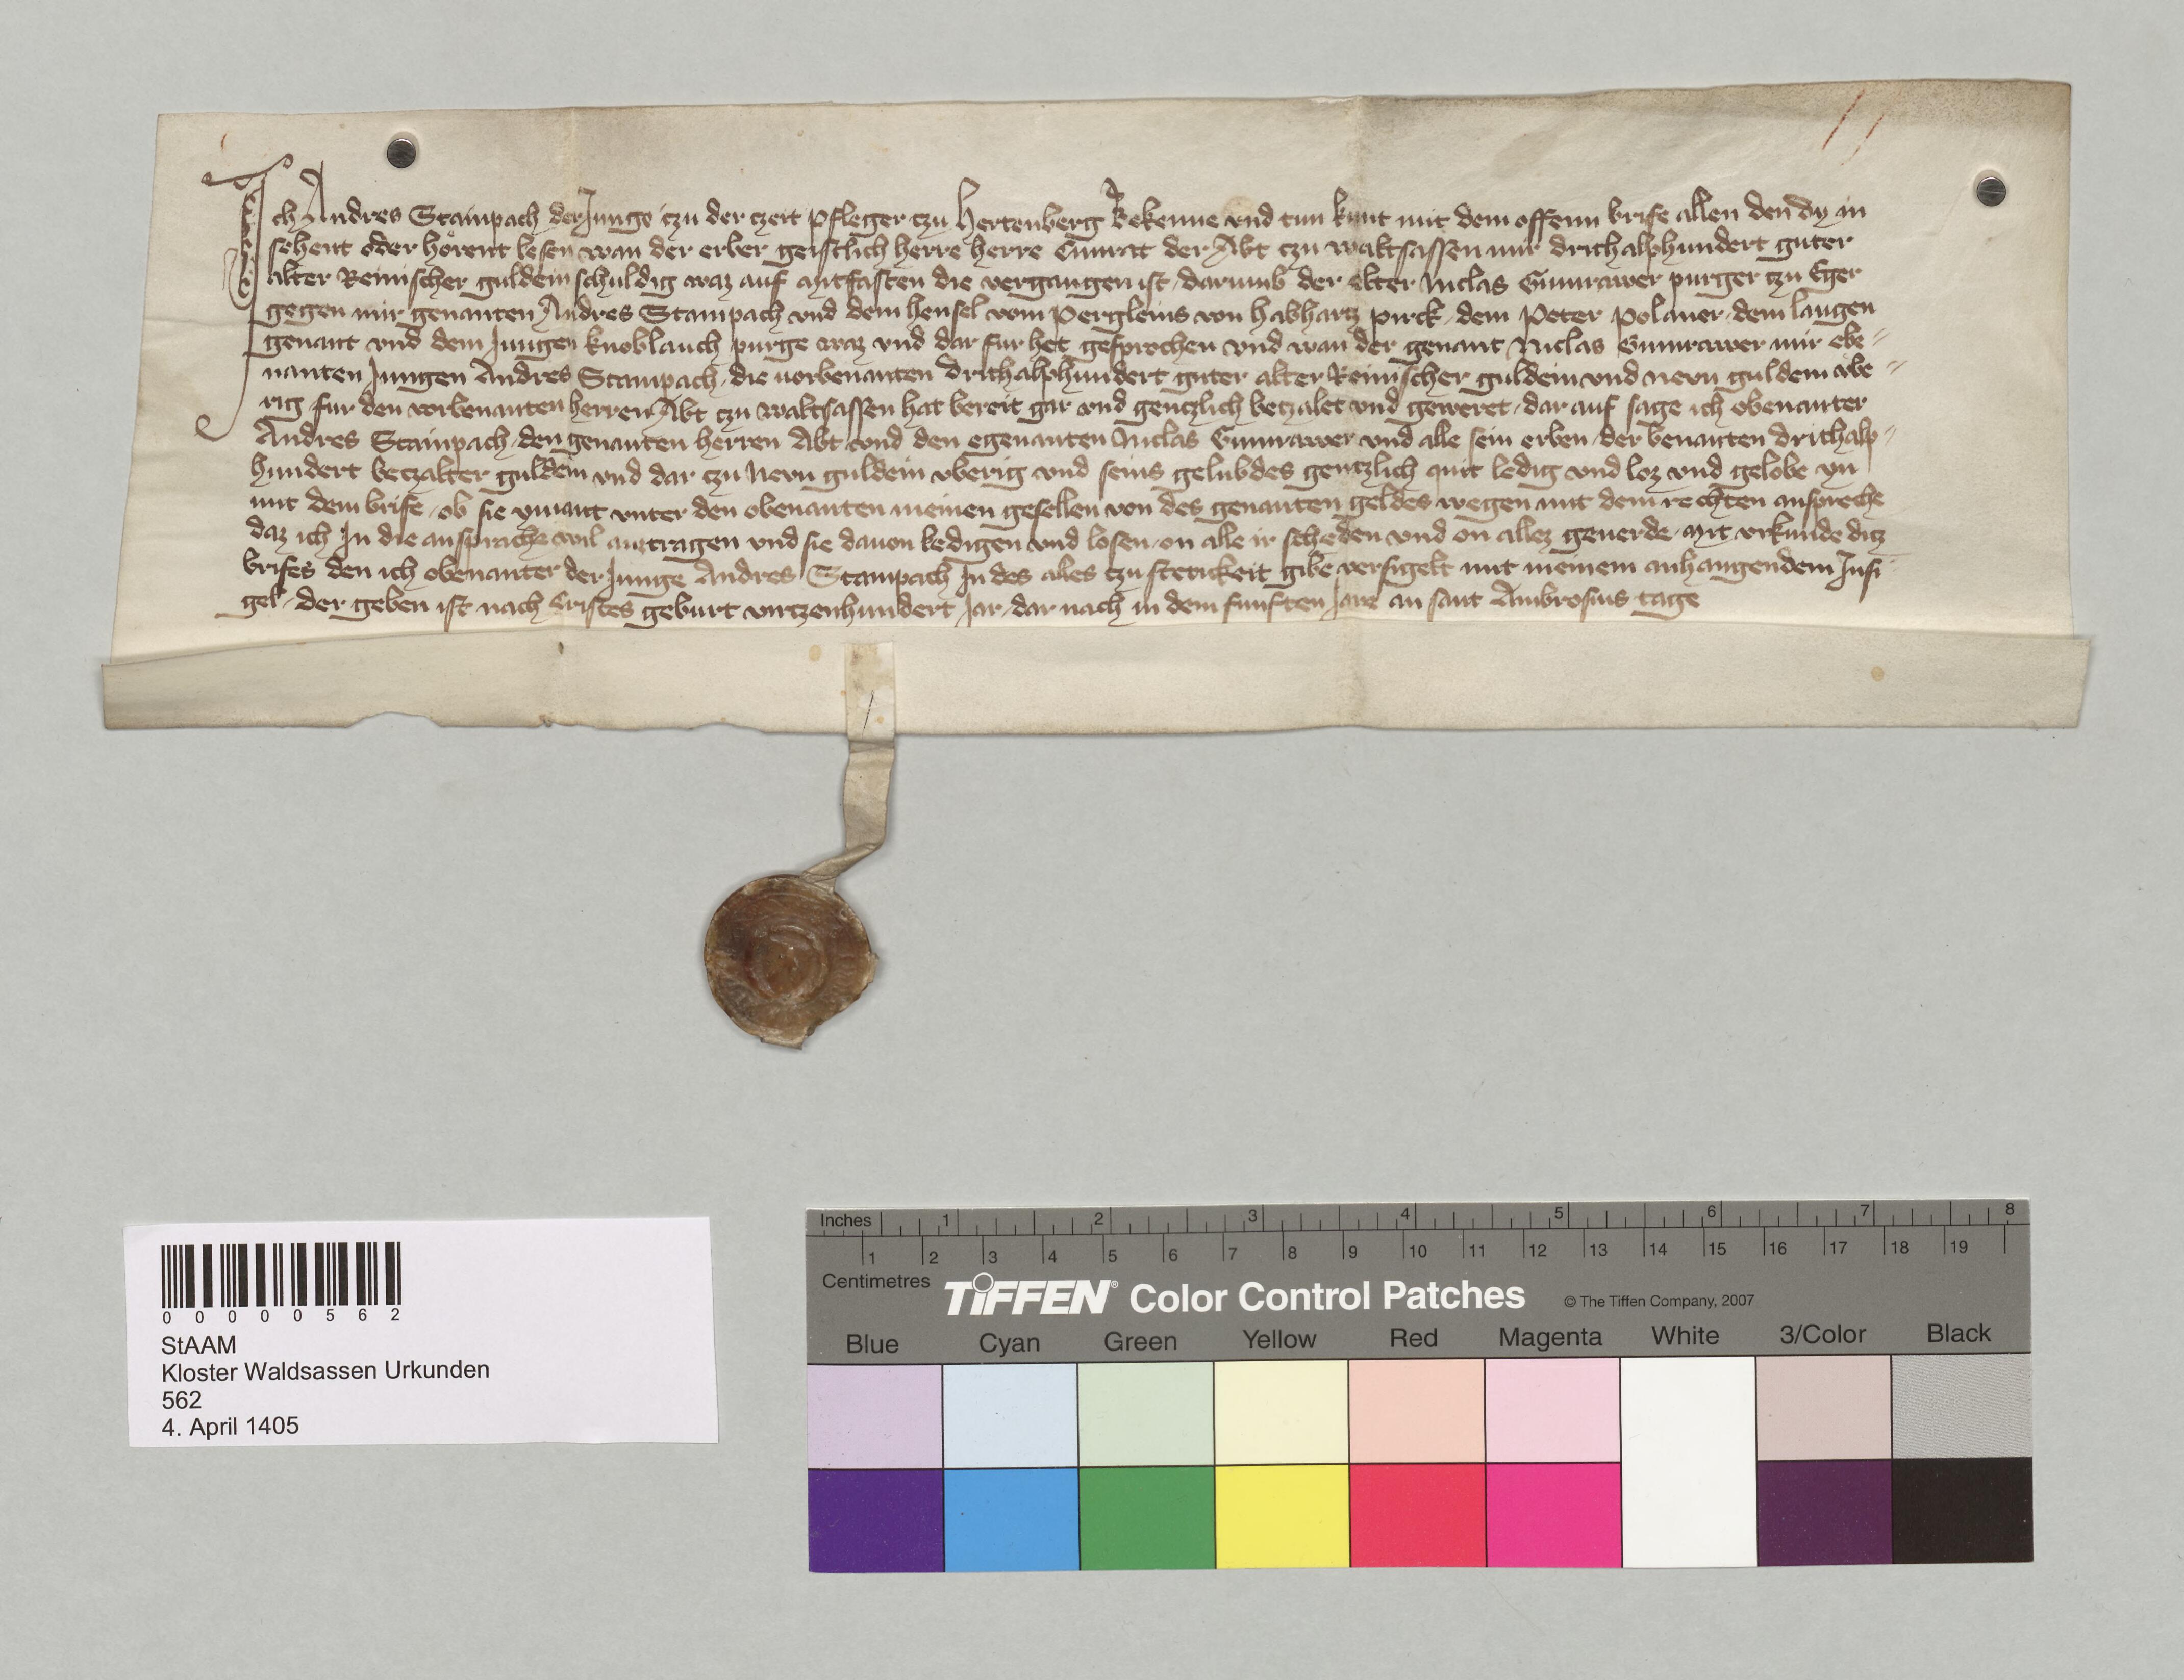 Ich Andres Stainpach der Junge tzu der tzeit pfleger tzu Hertenberg Bekenne vnd tun kunt mit dem offenn brife allen den dy in
sehent oder hörent lesen wan der erber geistlich herre herre Cunrat der Abt tzu waltsassen mir drithalphundert guter
alter Reinischer guldein schuldig waz auf mitfasten die vergangen ist darumb der elter Niclas Gumrawer purger tzu Eger
gegen mir genanten Andres Stainpach vnd dem hensel vom perglems von habhartz pirck dem peter polaner dem langen
genant vnd dem Jungen knoblauch purge waz vnd dar fur het gesprochen vnd wan der genant Niclas Gumrawer mir obe
nanten Jungen Andres Stainpach die uorbenanten drithalphundert guter alter Reinischer guldein vnd newn guldein vbe
rig fur den vorbenanten herren Abt tzu waltsassen hat bereit gar vnd gentzlich betzalet vnd geweret dar auf sage ich obenanter
Andres Stainpach den genanten herren Abt vnd den egenanten Niclas Gumrawer vnd alle sein erben der benanten drithalp
hundert betzalter guldein vnd dar tzu Newn guldein vberig vnd seins gelubdes gentzlich quit ledig vnd loz vnd gelobe yn
mit dem brife ob sie ymant vnter den obenanten meinen gesellen von des genanten geldes wegen mit dem rechten anspreche
daz ich In die ansprache wil auztragen vnd sie dauon ledigen vnd losen on alle ir scheden vnd on allez geuerde mit vrkunde ditz
brifes den ich obenanter der Junge Andres Stainpach In des alles tzu stetickeit gibe versigelt mit meinem anhangendem Insi
gel der geben ist nach Cristes geburt virtzenhundert Jar dar nach in dem funften Jare an sant Ambrosius tage
0 0 0 0 0 5 6 2
StAAM
Kloster Waldsassen Urkunden
562
4. April 1405
Inches 1 2 3 4 5 6 7 8
1 2 3 4 5 6 7 8 9 10 11 12 13 14 15 16 17 18 19
Centimetres
TIFFEN® Color Control Patches © The Tiffen Company, 2007
Blue Cyan Green Yellow Red Magenta White 3/Color Black